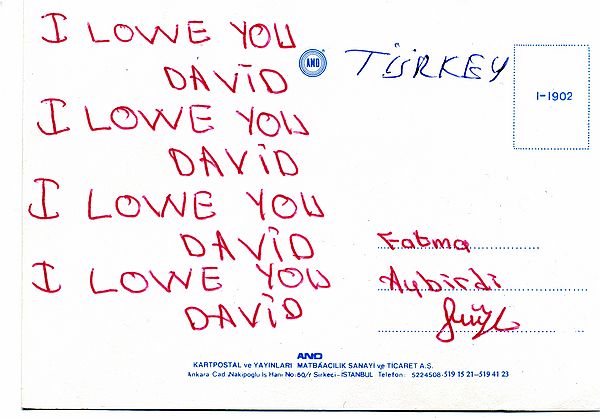 I LOWE YOU
DAVİD
I LOWE YOU
DAVİD
I LOWE YOU
DAVİD
I LOWE YOU
DAVİD
AND
TÜRKEY
1-1902
Fatma
Aybirdi
AND
KARTPOSTAL ve YAYINLARI MATBAACILIK SANAYİ ve TİCARET A.Ş.
Ankara Cad. Nakipoglu Is Hanı No:60/7 Sirkeci-İSTANBUL Telefon: 5224508-519 15 21-519 41 23